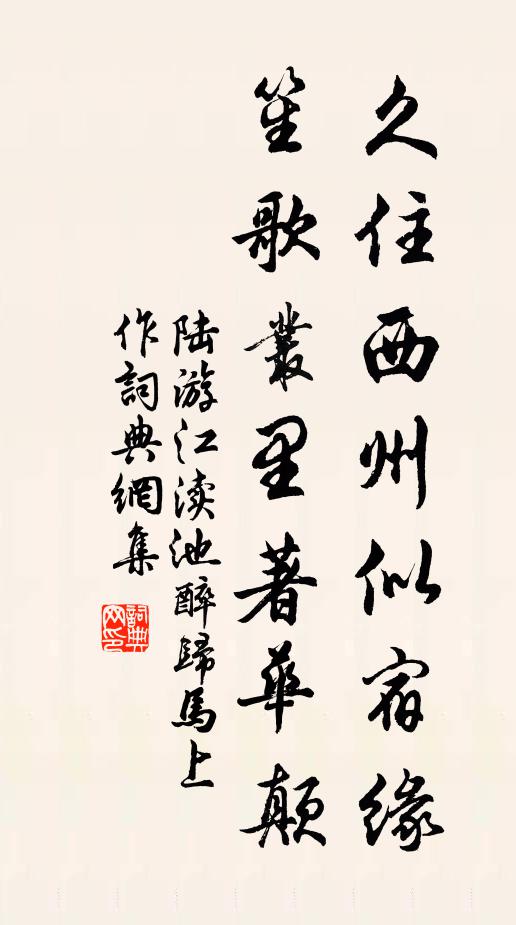 久住西州似宿缘
笙歌叢里著華顛
陆游江渎池醉歸馬上
作詞典網集
詞典
网印